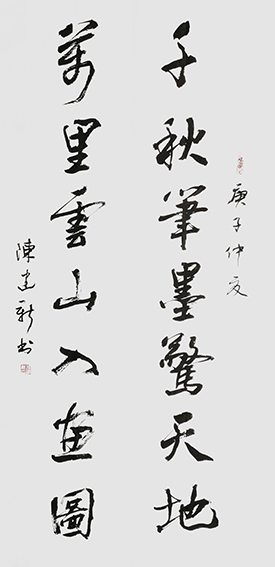 千秋筆墨驚天地
庚子仲夏
萬里雲山入畫圖
陳建新书